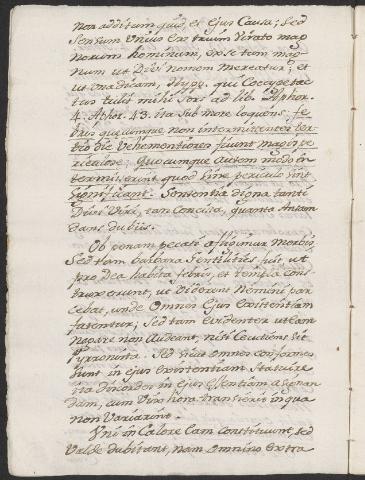 non additum quid, et ejus Causa; sed
sensum unius ex trium
norum hominum, ex se tam mag
num ut Divi nomen mereatur; et
ut tradicam, qui
tulit mihi sors ad lib. Aphor.
4. Aphor. 43. ita sub more loquens; fe
bris quaecumque non intermittentes ter
tio die vehementiores fiunt magis pe
riculose; Quocumque autem modo in
termiserint quod sine periculo sint
significant. Sententia digna tanti
Divi Viri, tan Concisa, quanta
dans dubiis.
Ob penam pecati Morbo,
Sed tam barbara Gentilitas fuit ut
pro Dea habita febris, et templa cons
truxerunt, ut Viderent Nemini par
cebat, unde Omnes ejus existentiam
fatentur; sed tam evidenter
negare non Audeant, nisi Cautious sit
Pyrronista. Sed sicut omnes conformes
sunt in ejus existentiam
ita in ejus essentiam
dam, cum Vix hora transierit in qua
non Variarint.
Uni in Calore eam constituunt, sed
valde dubitant, nam omnino extra